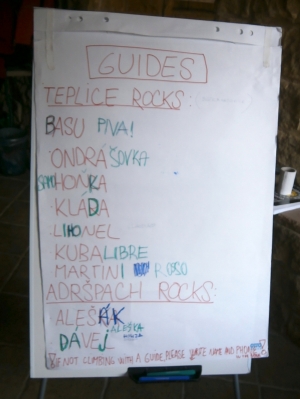 GUIDES
TEPLICE ROCKS:
BASU PIVA!
ONDRÁŠOVKA
SAMOHONKA
KLÁDA
LIHONEL
KUBALIBRE
MARTINI ROSSO
ADRŠPACH ROCKS:
ALEŠÁK
ALEŠKA
DAVEJ
IF NOT CLIMBING WITH A GUIDE, PLEASE WRITE NAME AND PHONE